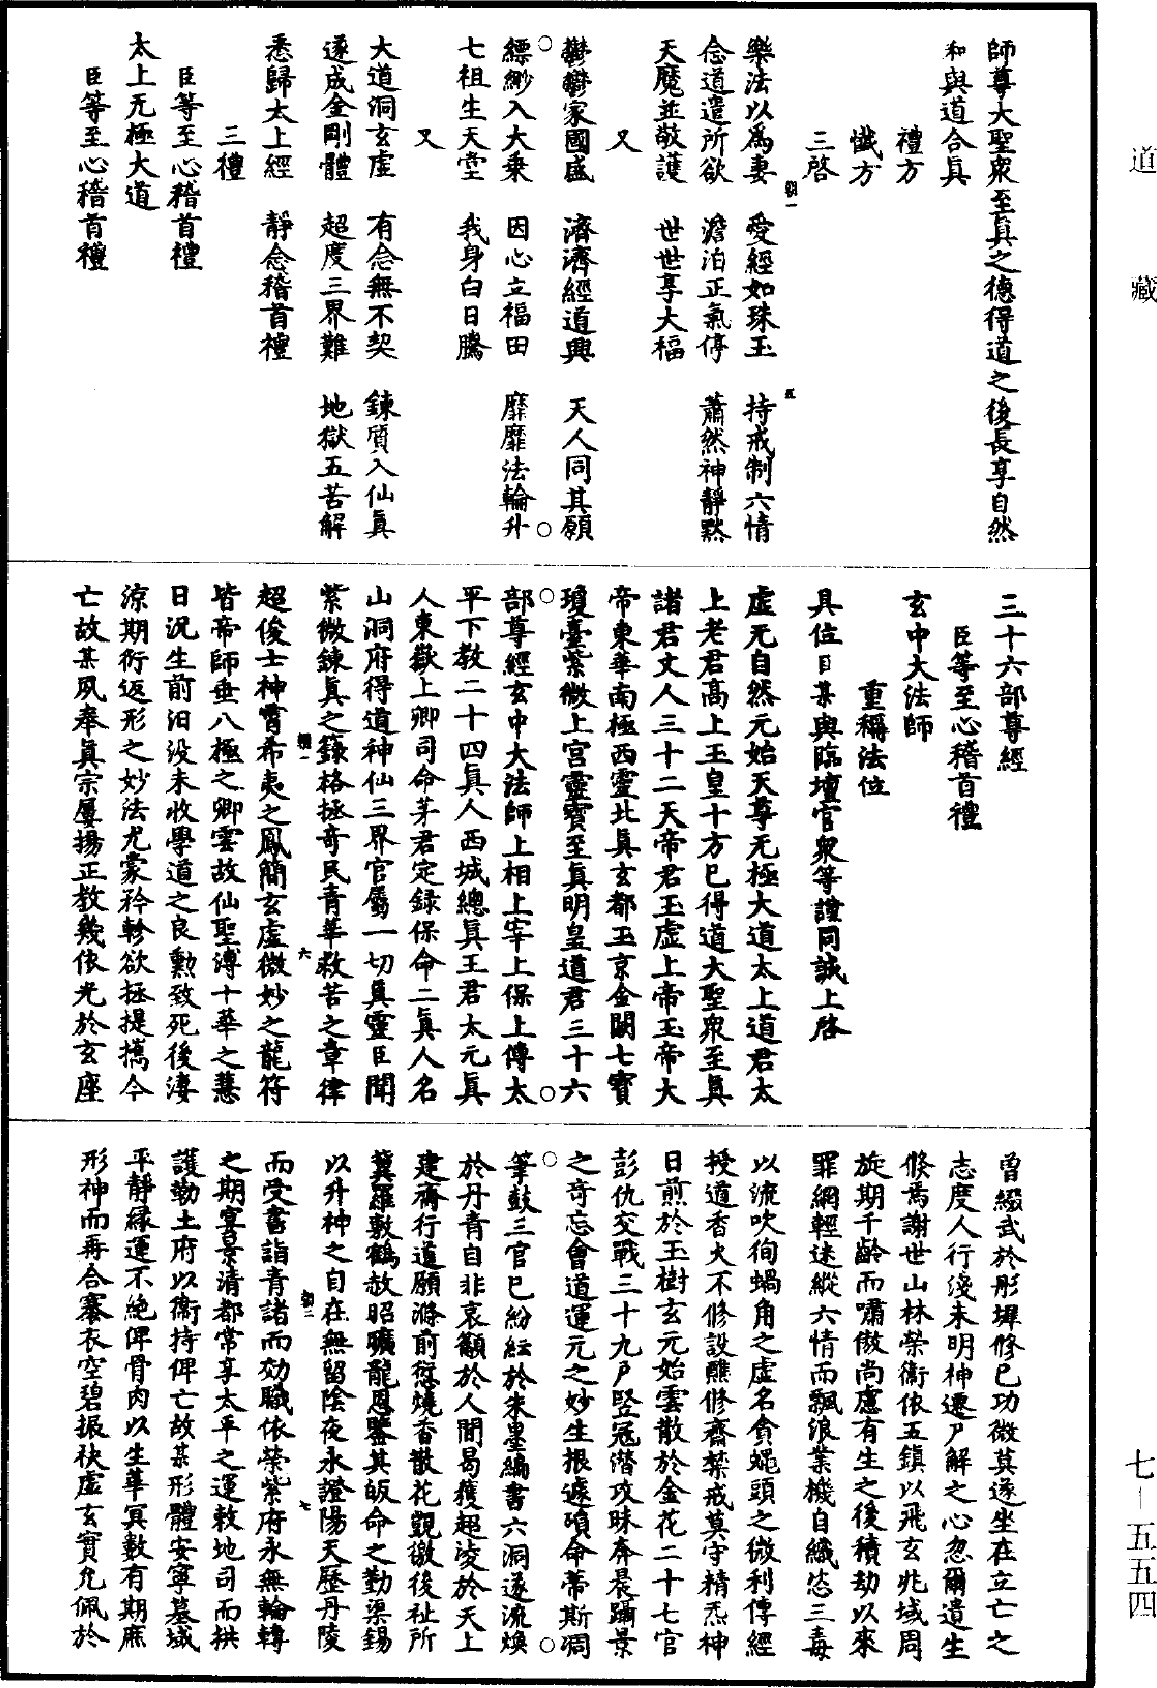 道藏
師尊大聖衆至眞之德得道之後長享自然
和與道合眞
禮方
懺方
三啓
樂法以爲妻 愛經如珠玉 持戒制六情
念道遣所欲 澹泊正氣停 蕭然神靜默
天魔並敬護 世世享大福
又
鬱鬱家國盛 濟濟經道興 天人同其願
縹緲入大乘 因心立福田 靡靡法輪升
七祖生天堂 我身白日騰
又
大道洞玄虛 有念無不契 鍊質入仙眞
遂成金剛體 超度三界難 地獄五苦解
悉歸太上經 靜念稽首禮
三禮
臣等至心稽首禮
太上无極大道
臣等至心稽首禮
三十六部尊經
臣等至心稽首禮
玄中大法師
重稱法位
具位臣某與臨壇官衆等謹同誠上啓
虛无自然元始天尊无極大道太上道君太
上老君高上玉皇十方已得道大聖衆至眞
諸君丈人三十二天帝君玉虛上帝玉帝大
帝東華南極西靈北眞玄都玉京金闕七寶
瓊臺紫微上宮靈寶至眞明皇道君三十六
部尊經玄中大法師上相上宰上保上傅太
平下教二十四眞人西城總眞王君太元眞
人東嶽上卿司命茅君定錄保命二眞人名
山洞府得道神仙三界官屬一切眞靈臣聞
紫微鍊眞之籙格拯奇民青華救苦之章律
超俊士神霄希夷之鳳簡玄虛微妙之龍符
皆帝師垂八極之卿雲故仙聖溥十華之慧
日況生前汨没未收學道之良勳致死後淒
涼期衍返形之妙法尤蒙矜軫欲拯提攜今
亡故某夙奉眞宗屢揚正教幾依光於玄座
曾綴武於彤墀修已功微莫遂坐在立亡之
志度人行淺未明神遷尸解之心忽爾遺生
倏焉謝世山林榮衞依五鎮以飛玄兆域周
旋期千齡而嘯傲尚慮有生之後積劫以來
罪網輕迷縱六情而飄浪業機自織恣三毒
以流吹徇蝸角之虛名貪蠅頭之微利傳經
授道香火不修設醮修齋禁戒莫守精炁神
日煎於玉樹玄元始雲散於金花二十七官
彭仇交戰三十九戶竪冠潛攻昧奔晨躡景
之奇忘會道運元之妙生根遽殞命蔕斯凋
筆鼓三官已紛紜於朱墨編書六洞遂流煥
於丹青自非哀籲於人間曷獲超淩於天上
建齋行道願滌前愆燒香散花覬徼後祉所
冀羅敷鶴赦昭曠龍恩鑒其皈命之勤渠錫
以升神之自在無留陰夜永證陽天歷丹陵
而受書詣青諸而効職依榮紫府永無輪轉
之期寓景清都常享太平之運敕地司而拱
護勒土府以衞持俾亡故某形體安寧墓域
平靜緣運不絶俾骨肉以生華冥數有期庶
形神而再合褰衣空碧振袂虛玄實允佩於
七—五五四